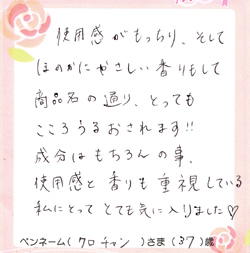 使用感がもっちり、そして
ほのかにやさしい香りもして
商品名の通り、とっても
こころうるおされます!!
成分はもちろんの事、
使用感と香りも重視している
私にとってとても気に入りました♡
ペンネーム(クロチャン)さま(37)歳